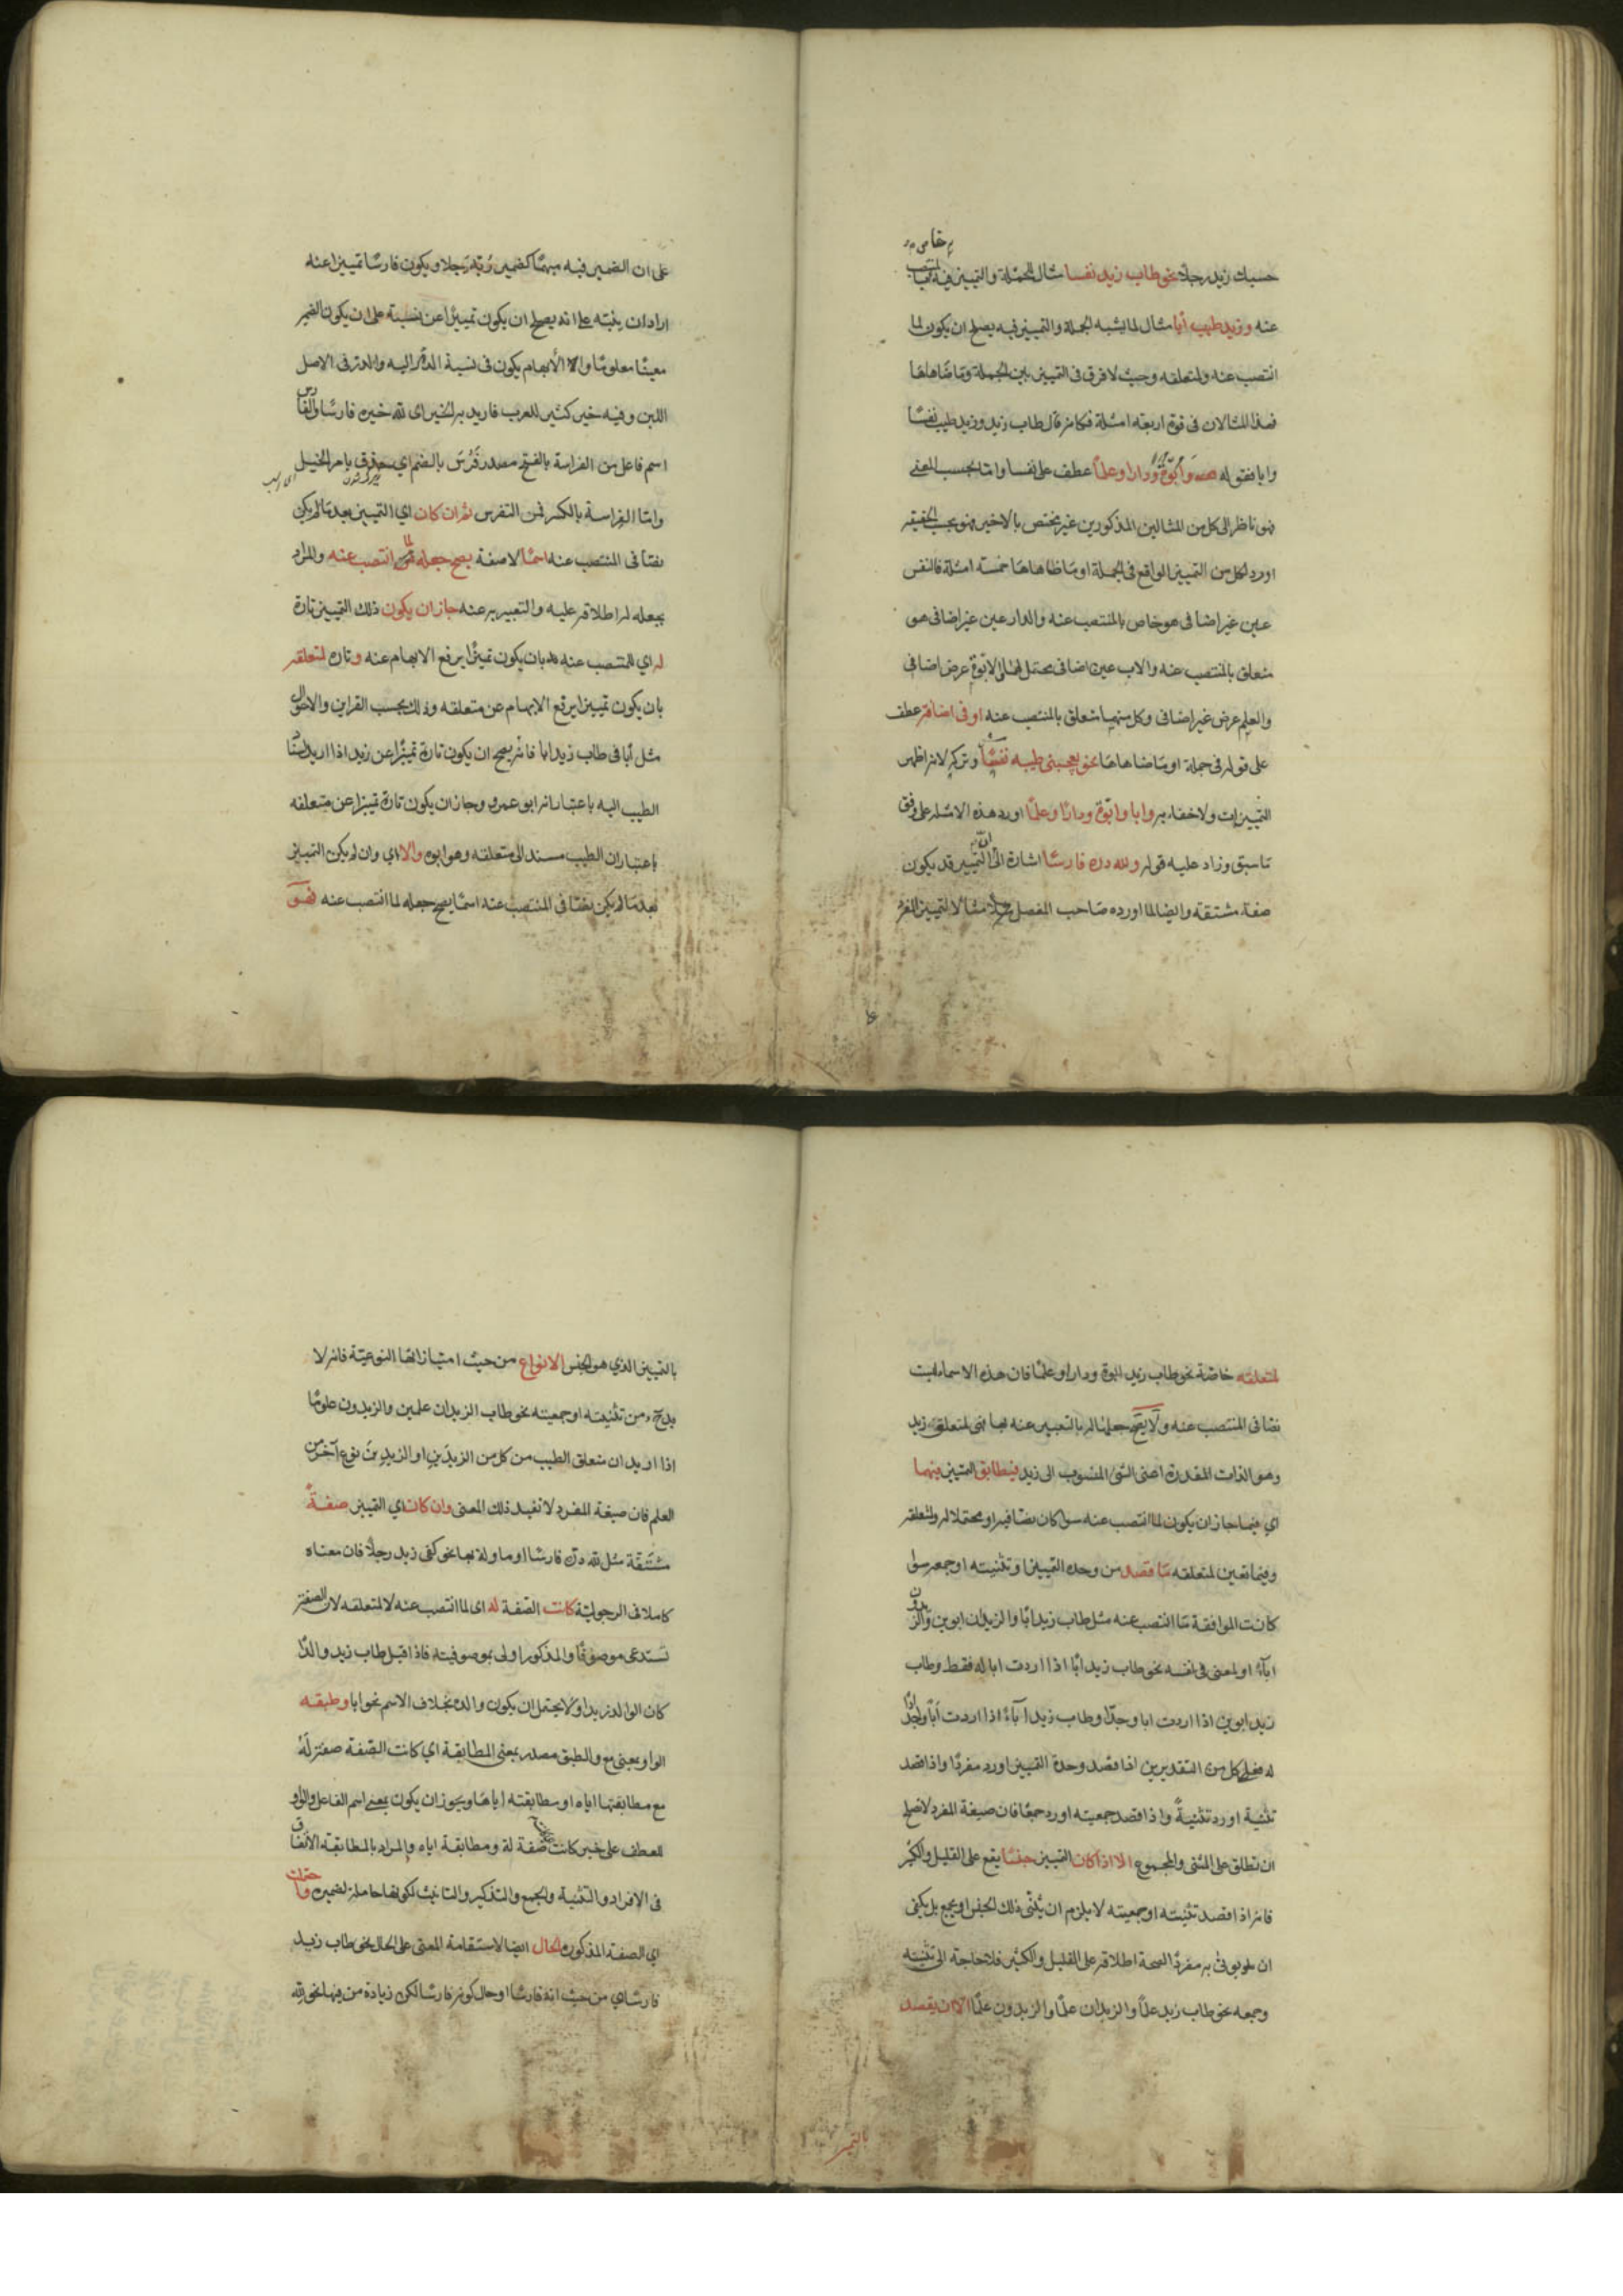 حسبك زيد رجلا نحو طاب زيد نفسا مثال للجملة والتمييز فيه لما
عنه وزيد طيب أبا مثال لما يشبه الجملة والتمييز فيه يصلح ان يكون لما
انتصب عنه ولمتعلقه وحيث لا فرق في التمييز بين الجملة وما ضاهاها
فهذا المثالان في قوة اربعة امثلة فكانه قال طاب زيد وزيد طيب نفسا
وابا فقوله وابوة ودارا وعلما عطف على نفسا واما بحسب المعنى
فهو ناظر الى كل من المثالين المذكورين غير مختص بالاخير فهو بحسب الحقيقة
اورد لكل من التمييز الواقع في الجملة او ما ضاهاها خمسة امثلة فالنفس
عين غير اضافي هو خاص بالمنتصب عنه والدار عين غير اضافي هو
متعلق بالمنتصب عنه والاب عين اضافي محتمل لهما والابوة عرض اضافي
والعلم عرض غير اضافي وكل منهما متعلق بالمنتصب عنه او في اضافة عطف
على قوله في جملة او ما ضاهاها نحو يعجبني طيبه نفسا وتركه لانه اظهر
التمييزات ولا خفاء به وابا وابوة ودارا وعلما اورد هذه الامثلة على وفق
ما سبق وزاد عليه قوله ولله دره فارسا اشارة الى ان التمييز قد يكون
صفة مشتقة وايضا لما اورده صاحب المفصل مثالا لتمييز المفرد
على ان الضمير فيه مبهما كضمير ربه رجلا ويكون فارسا تمييزا عنه
اراد ان ينبه على انه يصلح ان يكون تمييزا عن نسبة على ان يكون الضمير
معينا معلوما والابهام يكون في نسبة الدر اليه والدر في الاصل
اللبن وفيه خير كثير للعرب فاريد به الخير اى لله خيره فارسا والفارس
اسم فاعل من الفراسة بالفتح مصدر فرس بالضم اي حذق بامر الخيل
واما الفراسة بالكسر فمن التفرس ثم ان كان اي التمييز بعد ما لم يكن
نصا في المنتصب عنه اسما لا صفة يصح جعله لما انتصب عنه والمراد
بجعله له اطلاقه عليه والتعبير به عنه جاز ان يكون ذلك التمييز تارة
له اي للمنتصب عنه بان يكون تمييزا يرفع الابهام عنه وتارة لمتعلقه
بان يكون تمييزا يرفع الابهام عن متعلقه وذلك بحسب القراين والاحوال
مثل أبا في طاب زيد ابا فانه يصح ان يكون تارة تمييزا عن زيد اذا اريد اسناد
الطيب اليه باعتبار انه ابو عمرو وجاز ان يكون تارة تمييزا عن متعلقه
باعتبار ان الطيب مسند الى متعلقه وهو ابوه والا اي وان لم يكن التمييز
بعد ما لم يكن نصا في المنتصب عنه اسما يصح جعله لما انتصب عنه فهو
لمتعلقه خاصة نحو طاب زيد ابوة ودارا وعلما فان هذه الاسماء ليست
نصا في المنتصب عنه ولا يصح جعلها له بالتعبير عنه بها فهي لمتعلق زيد
وهو الذات المقدرة اعني الشئ المنسوب الى زيد فيطابق التمييز فيهما
اي فيما جاز ان يكون لما انتصب عنه سواء كان نصا فيه او محتملا له ولمتعلقه
وفيما تعين لمتعلقه ما قصد من وحدة التمييز او تثنيته او جمعه سواء
كانت الموافقة ما انتصب عنه مثل طاب زيد ابا والزيدان ابوين والزيدون
اباء او لمعنى في نفسه نحو طاب زيد أبا اذا اردت ابا له فقط وطاب
زيد ابوين اذا اردت ابا وجدا وطاب زيد آباء اذا اردت أبا واجدادا
له فعلى كل من التقديرين اذا قصد وحدة التمييز اورد مفردا واذا قصد
تثنية اورد تثنية واذا قصد جمعيته اورد جمعا فان صيغة المفرد لا تصلح
ان تطلق على المثنى والمجموع الا اذا كان التمييز جنسا يقع على القليل والكثير
فانه اذا قصد تثنيته او جمعيته لا يلزم ان يثنى ذلك الجنس او يجمع بل يكفي
ان يؤتى به مفردا لصحة اطلاقه على القليل والكثير فلا حاجة الى تثنيته
وجمعه نحو طاب زيد علما والزيدان علما والزيدون علما الا ان يقصد
بالتمييز
بالتمييز الذي هو الجنس الانواع من حيث امتيازاتها النوعية فانه لا
بد ح من تثنيته او جمعيته نحو طاب الزيدان علمين والزيدون علوما
اذا اريد ان متعلق الطيب من كل من الزيدين او الزيدين نوع آخر من
العلم فان صيغة المفرد لا تفيد ذلك المعنى وان كان اي التمييز صفة
مشتقة مثل لله دره فارسا او ماولة بها نحو كفى زيد رجلا فان معناه
كاملا في الرجولية كانت الصفة له اى لما انتصب عنه لا لمتعلقه لان الصفة
تستدعى موصوفا والمذكور اولى بموصوفيته فاذا قيل طاب زيد والدا
كان الوالد زيدا ولا يحتمل ان يكون والده بخلاف الاسم نحو ابا وطبقه
الواو بمعنى مع والطبق مصدر بمعنى المطابقة اي كانت الصفة صفة له
مع مطابقتها اياه او مطابقته اياها ويجوز ان يكون بمعنى اسم الفاعل والواو
للعطف على خبر كانت صفة له ومطابقة اياه والمراد بالمطابقة الاتفاق
في الافراد والتثنية والجمع والتذكير والتانيث لكونها حاملة لضميره واحتملت
اي الصفة المذكورة الحال ايضا لاستقامة المعنى على الحال نحو طاب زيد
فارسا اي من حيث انه فارسا او حال كونه فارسا لكن زيادة من فيها نحو لله